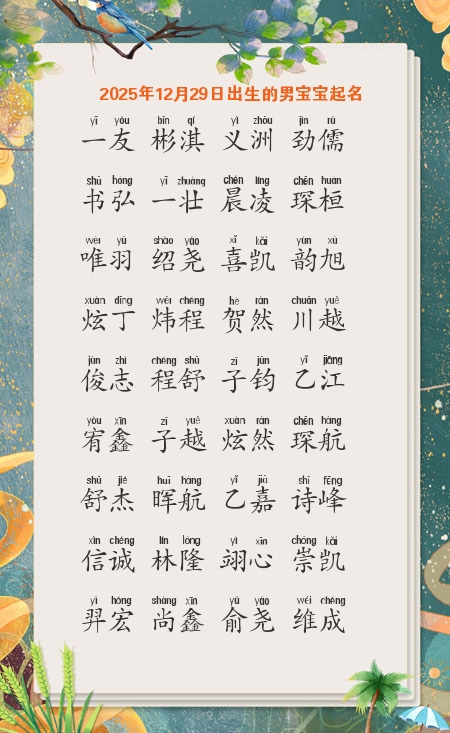 2025年12月29日出生的男宝宝起名
yī yǒu bīn qí yì zhōu jìn rú
一友 彬淇 义洲 劲儒
shū hóng yī zhuàng chén líng chēn huán
书弘 一壮 晨凌 琛桓
wéi yǔ shào yáo xǐ kǎi yùn xù
唯羽 绍尧 喜凯 韵旭
xuàn dīng wěi chéng hè rán chuān yuè
炫丁 炜程 贺然 川越
jùn zhì chéng shū zǐ jūn yǐ jiāng
俊志 程舒 子钧 乙江
yòu xīn zǐ yuè xuàn rán chēn háng
宥鑫 子越 炫然 琛航
shū jié huī háng yǐ jiā shī fēng
舒杰 晖航 乙嘉 诗峰
xìn chéng lín lóng yì xīn chóng kǎi
信诚 林隆 翊心 崇凯
yì hóng shàng xīn yú yáo wéi chéng
羿宏 尚鑫 俞尧 维成